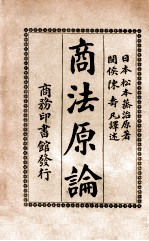 日本松本烝治原著
閩侯陳壽凡譯述
商法原論
商務印書館發行